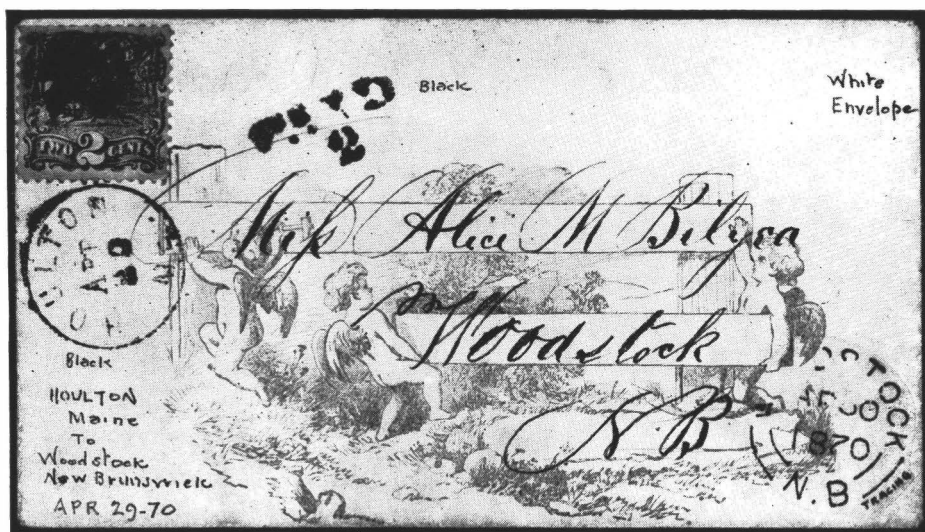 TWO 2 CENTS
Black
White
Envelope
Miss Alice M
Woodstock
N.B
Black
HOULTON
Maine
To
Woodstock
New Brunswick
APR 29-70
ULTON
STOCK
1870
N.B
TRACING